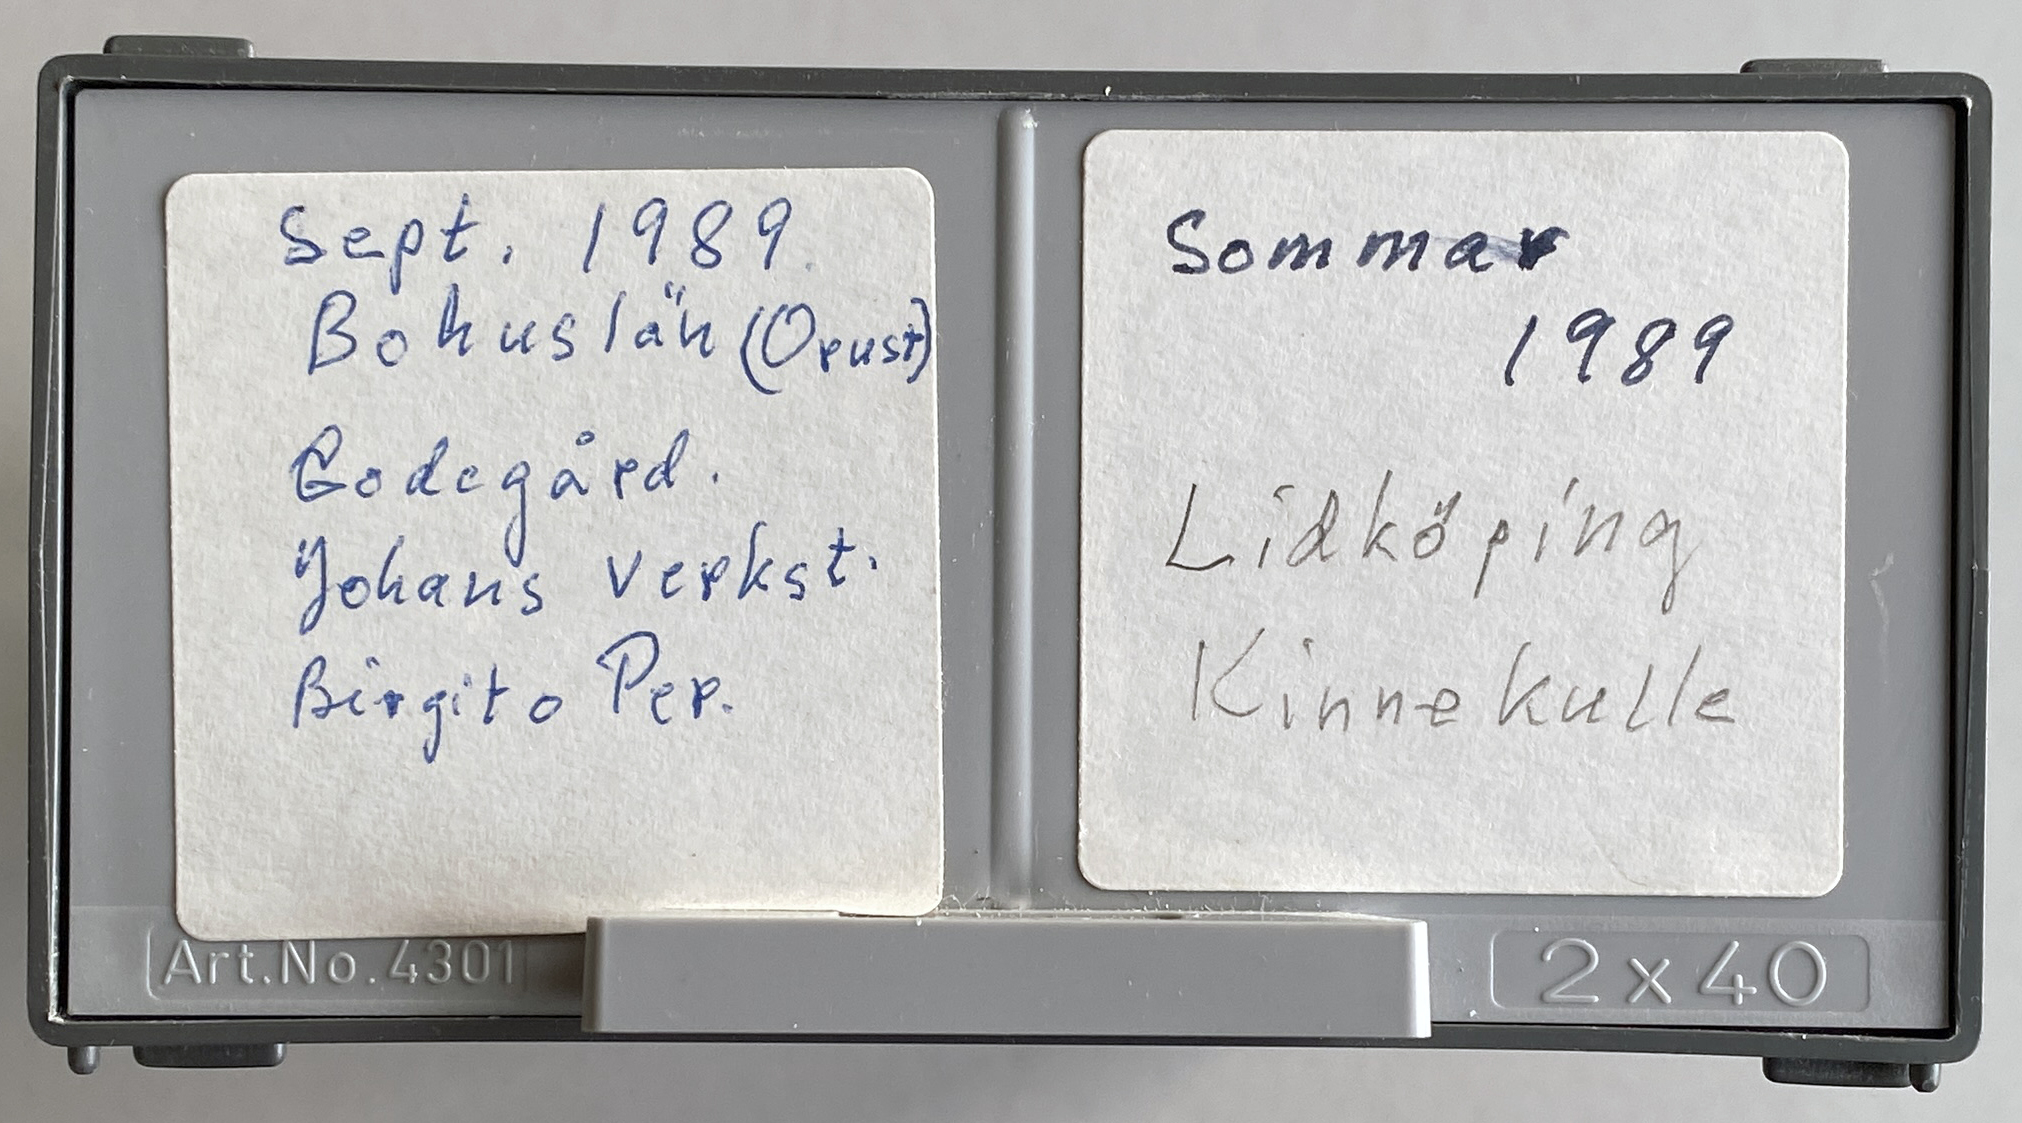 Sept. 1989.
Bohuslän (Orust)
Godegård.
Johans verkst.
Birgito Per.
Sommar
1989
Lidköping
Kinnekulle
Art.No.4301
2x40